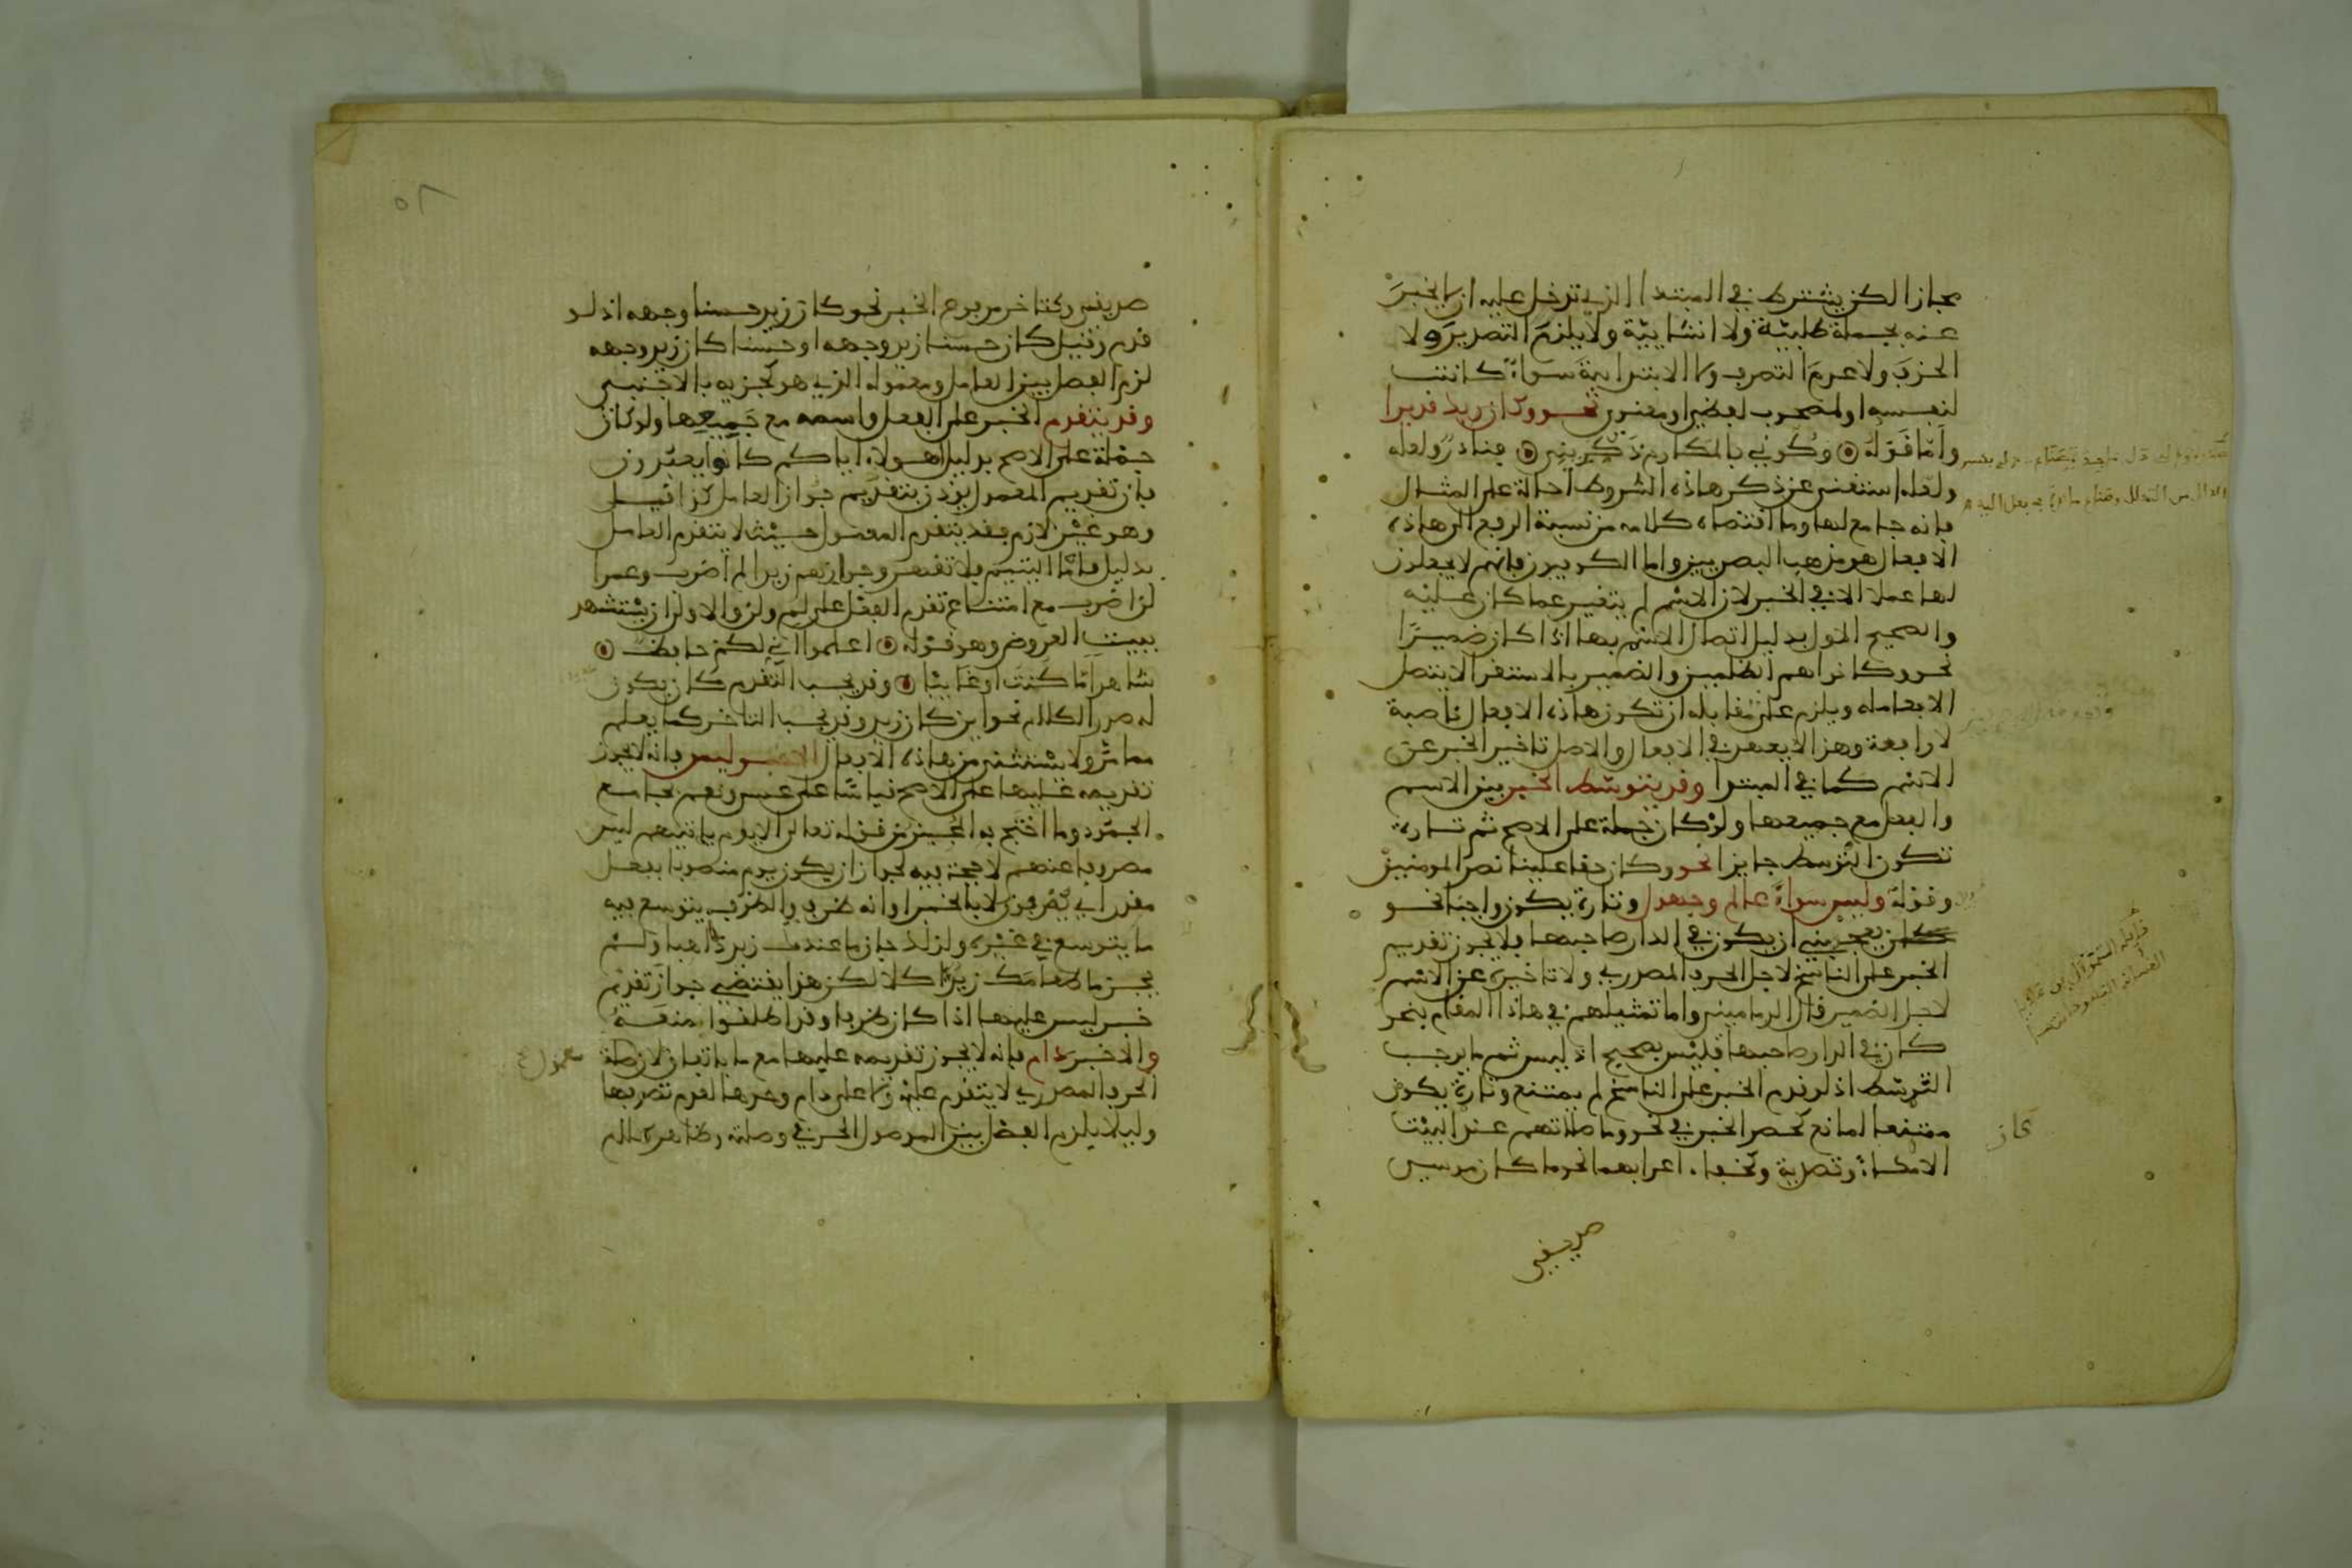 مجازا لكن يشترط في المبتدا الذي تدخل عليه ان لا يخبر
عنه بجملة طلبية ولا انشايية ولا يلزم التصدير ولا
الحذف ولا عدم التصرف ولا الابتدايية سواء كانت
لنفسه او لمصحوب لفظي او معنوي نحو وكان ربك قديرا
واما قوله وكوني بالمكارم ذكريني فنادر ولعله
ولعله استغنى عن ذكر هاذه الشروط احالة على المثال
فانه جامع لها وما اقتضاه كلامه من نسبة الرفع الى هاذه
الافعال هو مذهب البصريين واما الكوفيون فانهم لا يجعلون
لها عملا الا في الخبر لان الاسم لم يتغير عما كان عليه
والصحيح الاول بدليل اتصال الاسم بها اذا كان ضميرا
نحو وكانوا هم الظلمين والضمير بالاستقرا لا يتصل
الا بعامله ويلزم على مقابله ان تكون هاذه الافعال ناصبة
لا رافعة وهذا لا يعهد في الافعال والاصل تاخير الخبر عن
الاسم كما في المبتدا وقد يتوسط الخبر بين الاسم
والفعل مع جميعها ولو كان جملة على الاصح ثم تارة
تكون التوسط جايزا نحو وكان حقا علينا نصر المومنين
وقوله وليس سواء عالم وجهول وتارة يكون واجبا نحو
يعجبني ان يكون في الدار صاحبها فلا يجوز تقديم
الخبر على الناسخ لاجل الحرف المصدري ولا تاخيره عن الاسم
لاجل الضمير قال الدماميني واما تمثيلهم في هاذا المقام بنحو
كان في الدار صاحبها فليس بصحيح اذ ليس ثم ما يوجب
التوسط اذ لو قدم الخبر على الناسخ لم يمتنع وتارة يكون
ممتنعا لمانع كحصر الخبر في نحو وما كان صلاتهم عند البيت
الا مكاء وتصدية وكخفاء اعرابهما نحو ما كان موسى
صديقي
صديقي وكتاخر مرفوع الخبر نحو كان زيد حسنا وجهه اذ لو
قدم وقيل كان حسنا زيد وجهه او حسنا كان زيد وجهه
لزم الفصل بين العامل ومعموله الذي هو كجزيه بالاجنبي
وقد يتقدم الخبر على الفعل واسمه مع جميعها ولو كان
جملة على الاصح بدليل اهولاء اياكم كانوا يعبدون
فان تقديم المعمول يوذن بتقديم جواز العامل كذا قيل
وهو غير لازم فقد يتقدم المعمول حيث لا يتقدم العامل
بدليل فاما اليتيم فلا تقهر وجوازهم زيدا لم اضرب وعمرا
لن اضرب مع امتناع تقدم الفعل على لم ولن والاولى ان يستشهد
ببيت العروض وهو قوله اعلموا اني لكم حافظ
شاهدا ما كنت او غايبا وقد يجب التقدم كان يكون
له صدر الكلام نحو اين كان زيد وقد يجب التاخر كما يعلم
مما مر ولا يستثنى من هاذه الافعال الا ليس فانه لا يجوز
تقديمه عليها على الاصح قياسا على عسى ونعم بجامع
الجمود وما احتج به المجيز من قوله تعالى الا يوم ياتيهم ليس
مصروفا عنهم لا حجة فيه لجواز ان يكون يوم منصوبا بفعل
مقدر اي يعرفون لا بالخبر او انه ظرف والظرف يتوسع فيه
ما لا يتوسع في غيره ولذلك جاز ما عندك زيد ذاهبا ولم
يجز ما طعامك زيد اكلا لكن هذا يقتضي جواز تقدم
خبر ليس عليها اذا كان ظرفا وقد اطلقوا منعه
والا خبر دام فانه لا يجوز تقديمه عليها مع ما باتفاق لان صلة
الحرف المصدري لا يتقدم عليه ولا على دام وحدها لعدم تصرفها
وليلا يلزم الفصل بين الموصول الحرفي وصلته وظاهر كلام